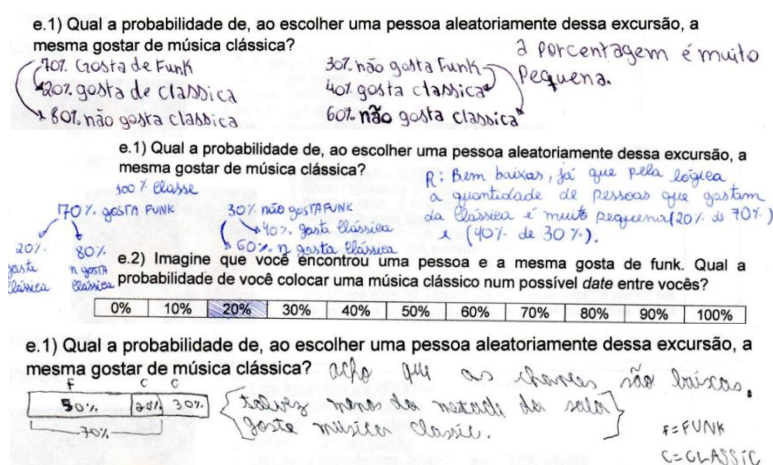 e.1) Qual a probabilidade de, ao escolher uma pessoa aleatoriamente dessa excursão, a
mesma gostar de música clássica?
a porcentagem é muito
pequena.
70% Gosta de Funk
20% gosta de classica
80% não gosta classica
30% não gosta Funk
40% gosta classica
60% não gosta classica
e.1) Qual a probabilidade de, ao escolher uma pessoa aleatoriamente dessa excursão, a
mesma gostar de música clássica?
100% Classe
70% gosta FUNK
20%
gosta
Clássica
80%
n gosta
Clássica
30% não gosta FUNK
40% gosta Clássica
60% n gosta Clássica
R: Bem baixas, já que pela lógica
a quantidade de pessoas que gostam
da Clássica é muito pequena (20% de 70%)
e (40% de 30%).
e.2) Imagine que você encontrou uma pessoa e a mesma gosta de funk. Qual a
probabilidade de você colocar uma música clássico num possível date entre vocês?
0% 10% 20% 30% 40% 50% 60% 70% 80% 90% 100%
e.1) Qual a probabilidade de, ao escolher uma pessoa aleatoriamente dessa excursão, a
mesma gostar de música clássica?
acho que as chances são baixas.
talvez menos da metade da sala
goste música classic.
F C C
50% 20% 30%
70%
F=FUNK
C=CLASSIC